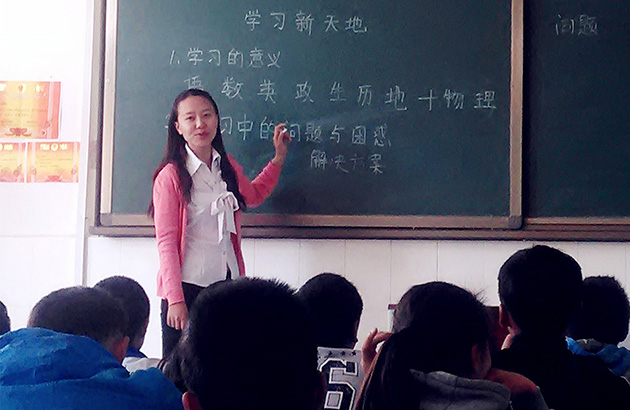 学习新天地
1.学习的意义
语 数 英 政 生 历 地 十 物 理
习中的问题与困惑
解决方案
问题
6